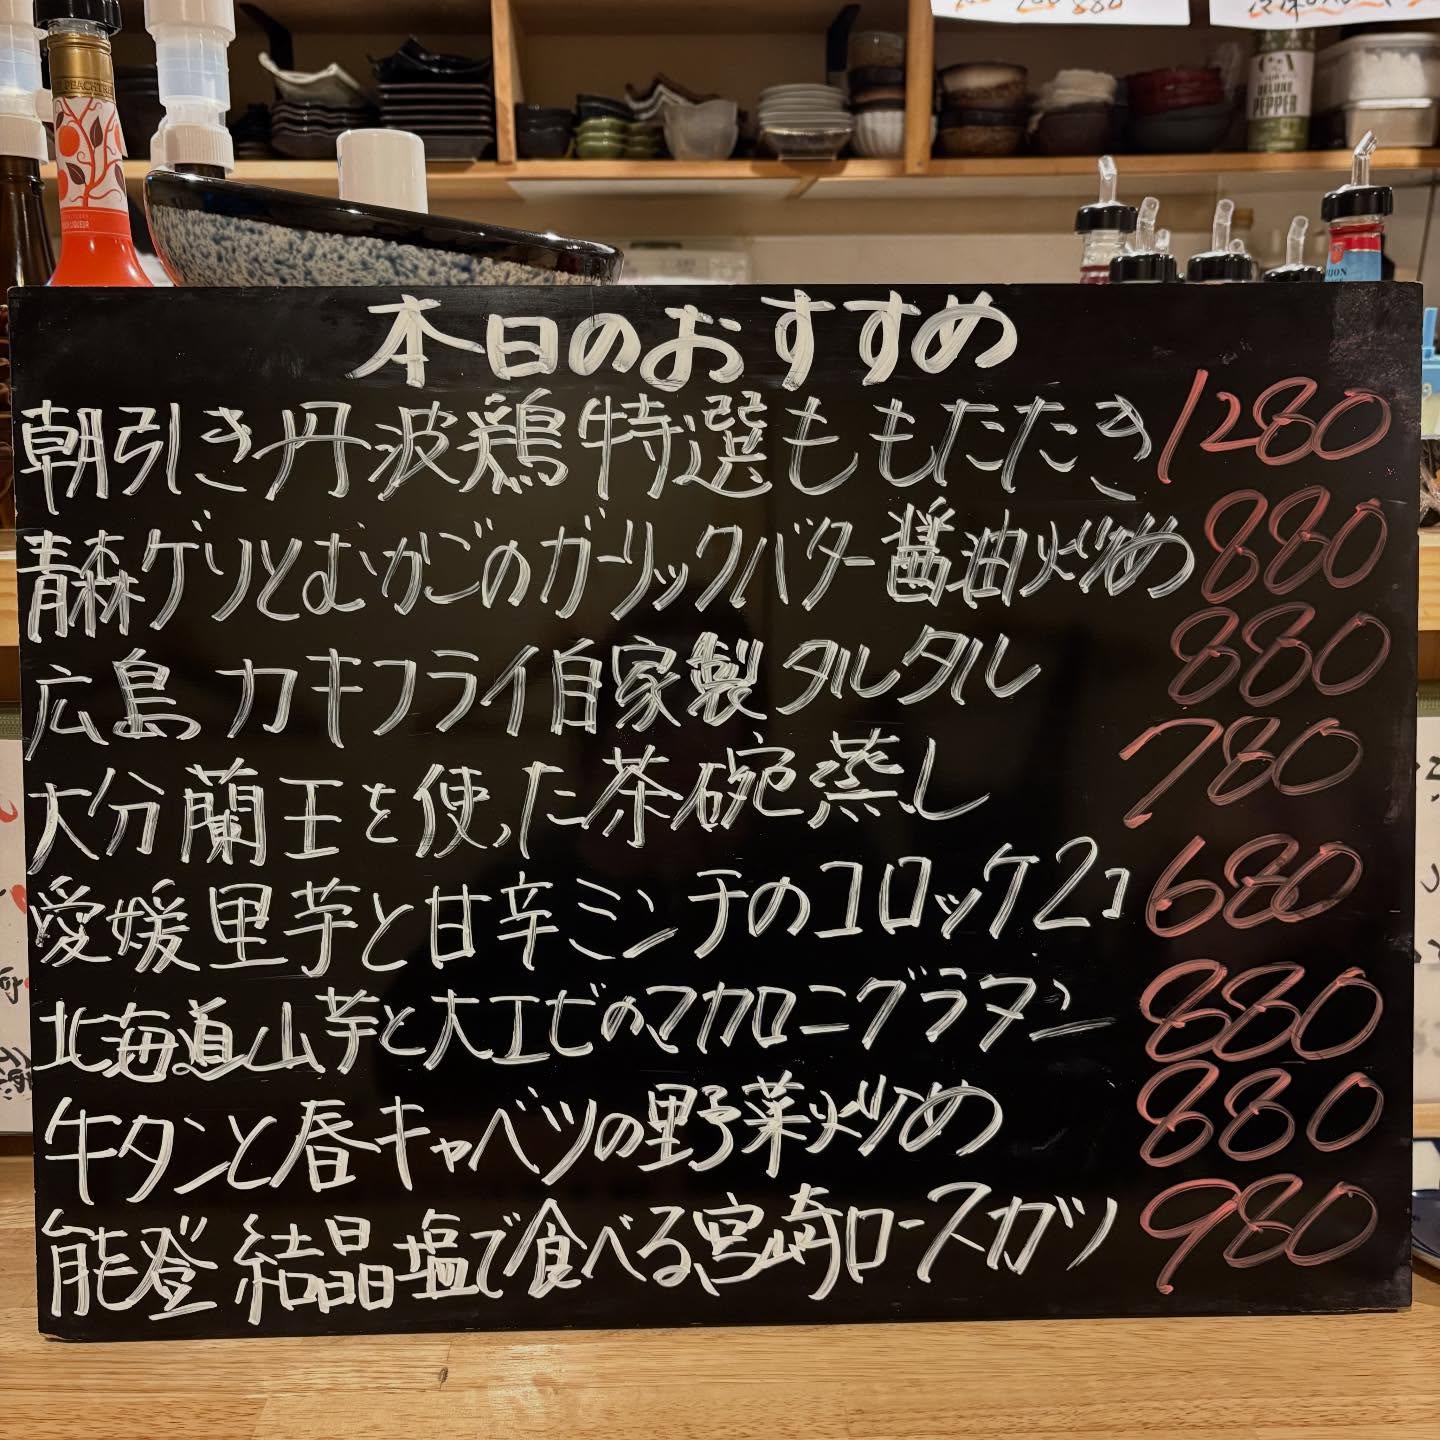 本日のおすすめ
朝引き丹波鶏特選ももたたき 1280
青森ゲソとむかごのガーリックバター醤油炒め 880
広島カキフライ自家製タルタル 880
大分蘭王を使った茶碗蒸し 780
愛媛里芋と甘辛ミンチのコロッケ2コ 680
北海道山芋と大エビのマカロニグラタン 880
牛タンと春キャベツの野菜炒め 880
能登結晶塩で食べる宮崎ロースカツ 980
PEACHTREE
DELUXE
PEPPER